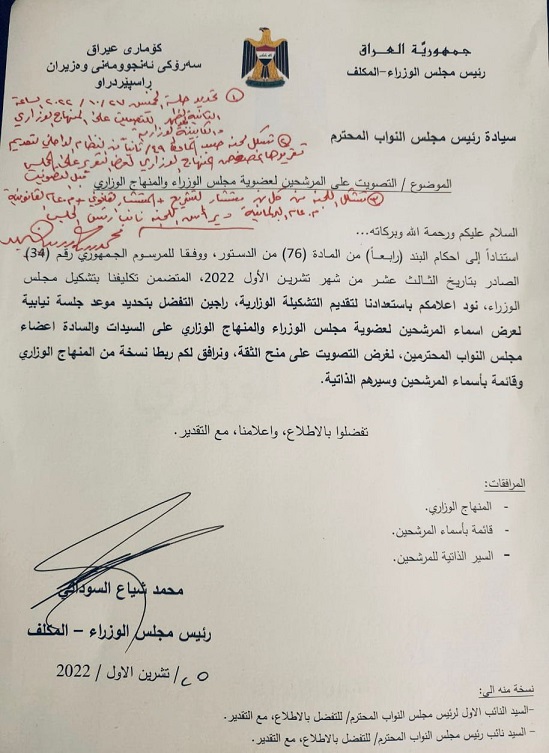 جمهوريّة العـراق
رئيس مجلس الوزراء-المكلف
كۆماری عیراق
سەرۆکی ئەنجوومەنی وەزیران
ڕاسپێردراو
① تحديد جلسة الخميس ٢٧/ ١٠/ ٢٠٢٢ الساعة
الثانية ظهر للتصويت على المنهاج الوزاري
والكابينة الوزارية
② تشكل لجنة حسب المادة ٤٩/ ثانياً من النظام الداخلي لتقديم
تقريرها بخصوص المنهاج الوزاري لعرض التقرير على المجلس
قبل التصويت
③ تشكل اللجنة من
سيادة رئيس مجلس النواب المحترم
الموضوع / التصويت على المرشحين لعضوية مجلس الوزراء والمنهاج الوزاري
السلام عليكم ورحمة الله وبركاته...
استناداً إلى احكام البند (رابعـاً) من المادة (76) من الدستور، ووفقـا للمرسوم الجمهوري رقم (34)
الصادر بتاريخ الثالث عشر من شهر تشرين الأول 2022، المتضمن تكليفنا بتشكيل مجلس
الوزراء، نود اعلامكم باستعدادنا لتقديم التشكيلة الوزارية، راجين التفضل بتحديد موعد جلسة نيابية
لعرض اسماء المرشحين لعضوية مجلس الوزراء والمنهاج الوزاري على السيدات والسادة اعضاء
مجلس النواب المحترمين، لغرض التصويت على منح الثقة، ونرافق لكم ربطا نسخة من المنهاج الوزاري
وقائمة بأسماء المرشحين وسيرهم الذاتية.
تفضلوا بالاطلاع، واعلامنا، مع التقدير.
المرافقات:
- المنهاج الوزاري.
- قائمة بأسماء المرشحين.
- السير الذاتية للمرشحين.
محمد شياع السوداني
رئيس مجلس الوزراء – المكلف
٢٥/ تشرين الاول / 2022
نسخة منه الى:
-السيد النائب الاول لرئيس مجلس النواب المحترم/ للتفضل بالاطلاع، مع التقدير.
- السيد نائب رئيس مجلس النواب المحترم/ للتفضل بالاطلاع، مع التقدير.